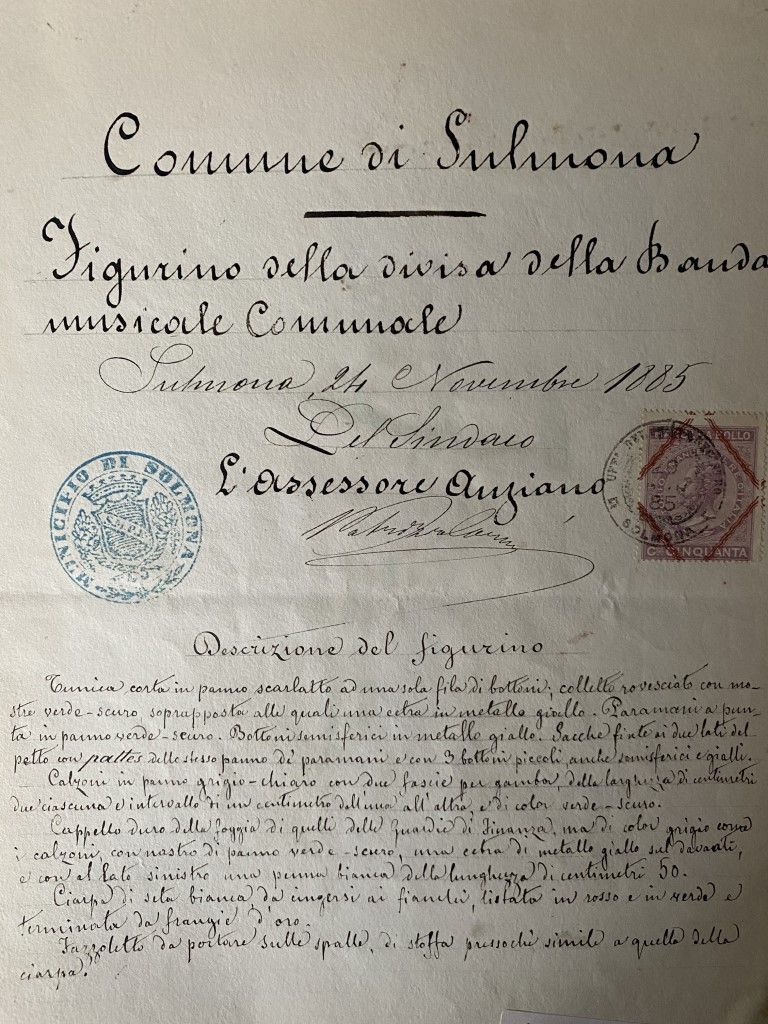 Comune di Sulmona
Figurino della divisa della Banda
musicale Comunale
Sulmona, 24 Novembre 1885
Del Sindaco
L'assessore Anziano
MUNICIPIO DI SOLMONA
BOLLO
SOLMONA
C.MI CINQUANTA
Descrizione del figurino
Tunica corta in panno scarlatto ad una sola fila di bottoni; colletto rovesciato con mo-
stre verde-scuro, soprapposta alle quali una cetra in metallo giallo. Paramani a pun-
ta in panno verde-scuro. Bottoni semisferici in metallo giallo. Tacche finte ai due lati del
petto con pattes dello stesso panno de' paramani e con 3 bottoni piccoli, anche semisferici e gialli.
Calzoni in panno grigio-chiaro con due fascie per gamba, della larghezza di centimetri
due ciascuna e intervallo di un centimetro dall'una all'altra, e di color verde-scuro.
Cappello duro della foggia di quelle delle Guardie di Finanza, ma di color grigio come
i calzoni, con nastro di panno verde-scuro, una cetra di metallo giallo sul davanti,
e con al lato sinistro una penna bianca della lunghezza di centimetri 50.
Ciarpa di seta bianca da cingersi ai fianchi, listata in rosso e in verde e
terminata da frangie d'oro.
Fazzoletto da portare sulle spalle, di stoffa pressochè simile a quella della
ciarpa.